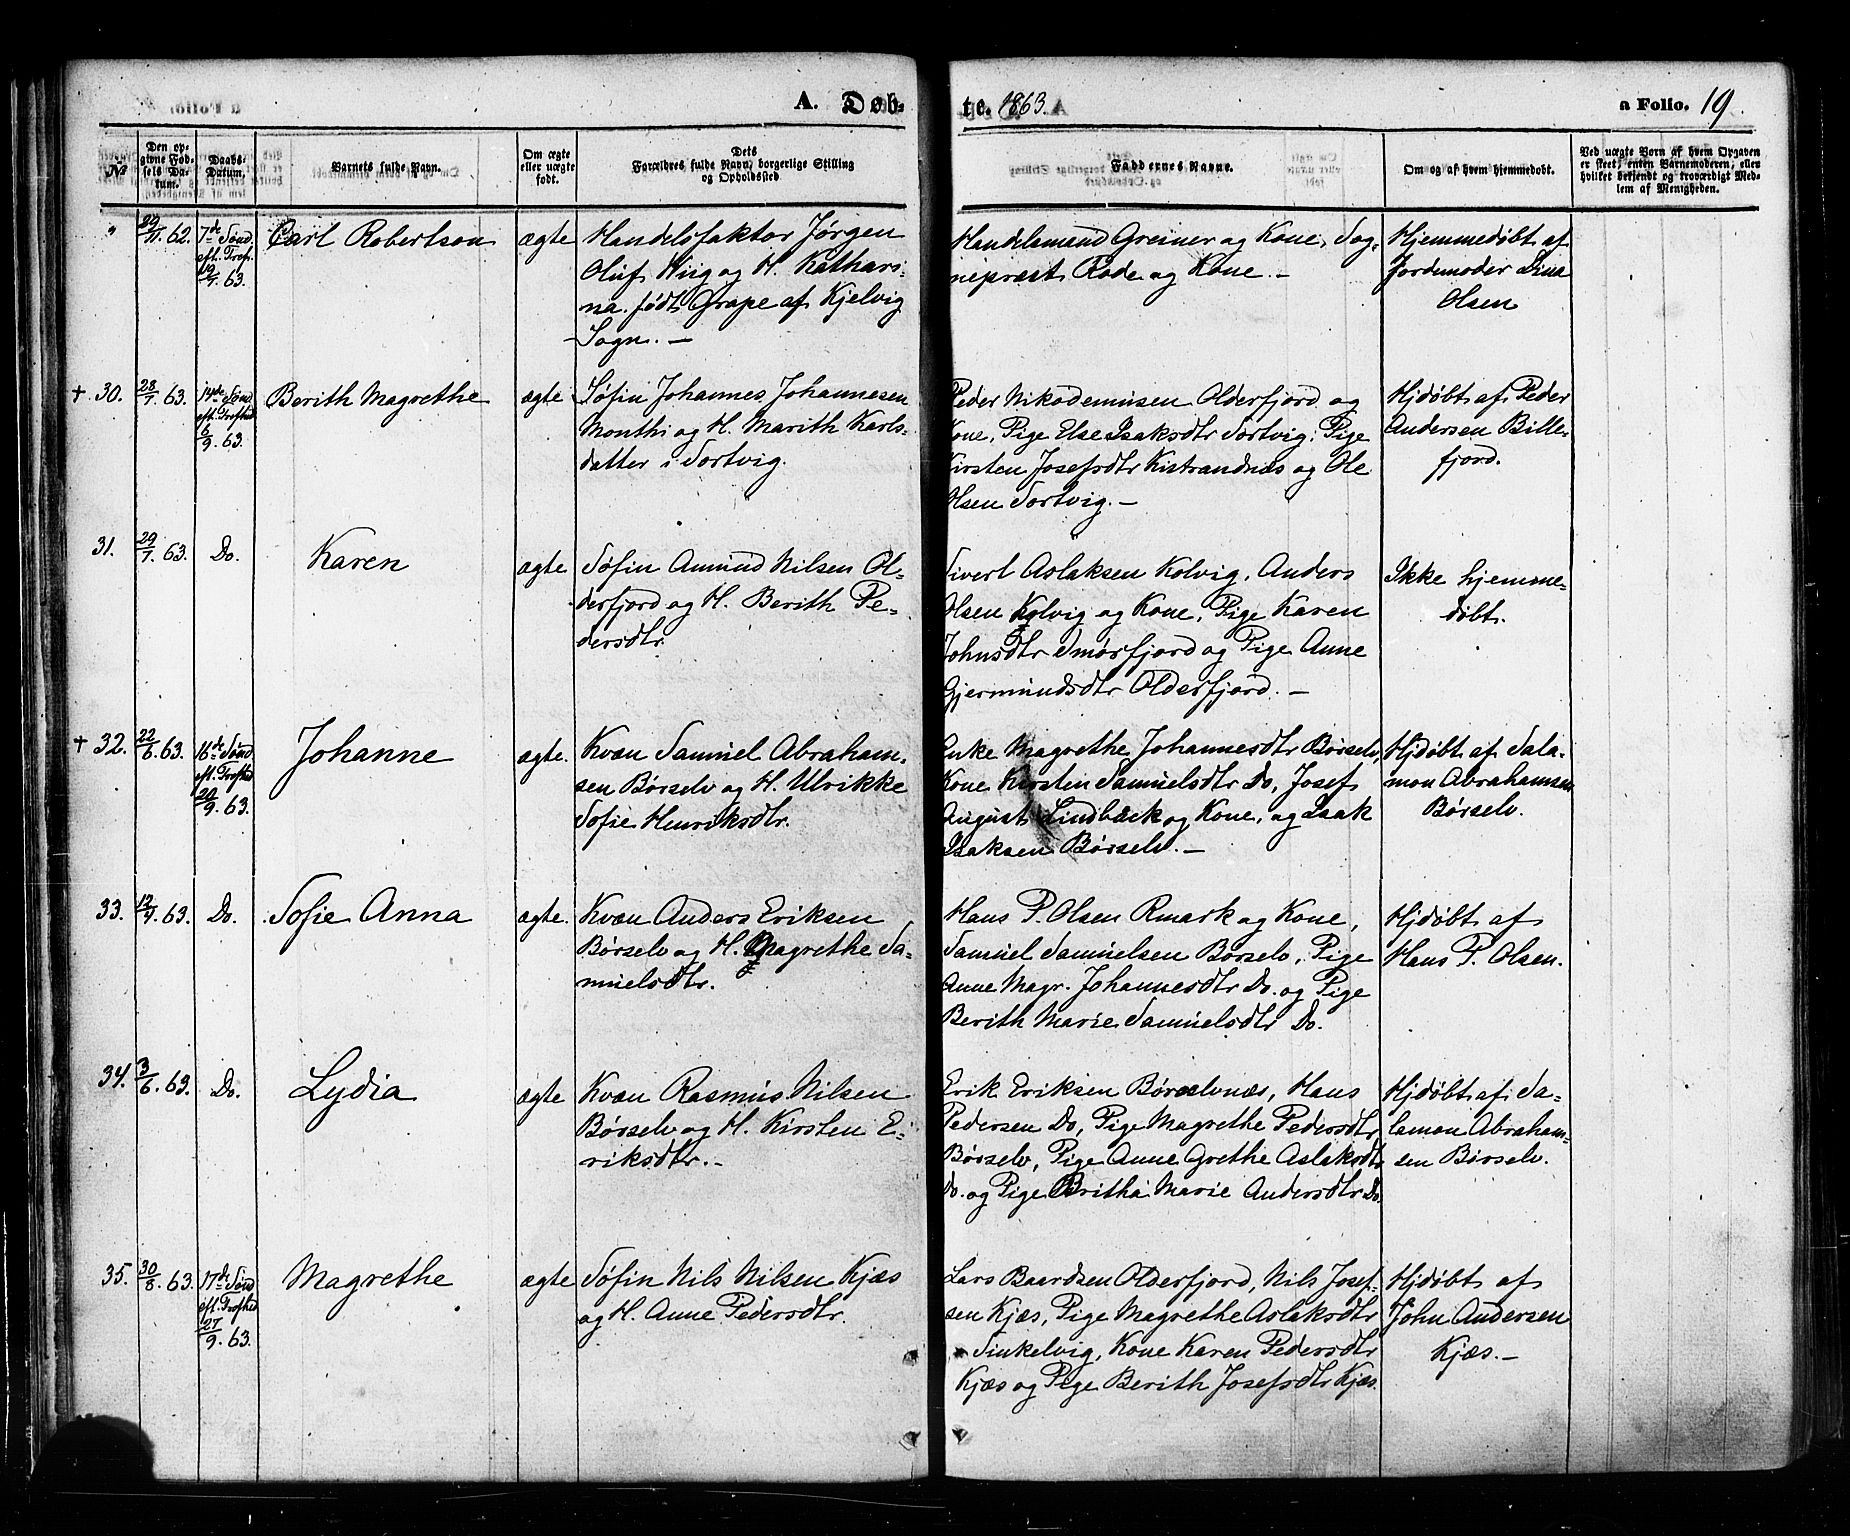 A. Døb-
te. 1863.
a Folio. 19.
№
Den op-
givne Fød-
sels Da-
tum.
Daabs-
Datum.
Barnets fulde Navn.
Om ægte
eller uægte
født.
Dets
Forældres fulde Navn, borgerlige Stilling
og Opholdssted
Faddernes Navne.
Om og af hvem hjemmedøbt.
Ved uægte Børn af hvem Opgaven
er skeet, enten Barnemoderen, eller
hvilket bekjendt og troværdigt Med-
lem af Menigheden.
"
29/11 62.
7de Sønd.
eft. Tref.
19/7 63.
Carl Robertson
ægte
Handelsfaktor Jørgen
Oluf Wiig og H. Kathari-
na født Grape af Kjelvig
Sogn. —
Handelsmand Greiner og Kone, Sog-
nepræst Rode og Kone. —
Hjemmedøbt af
Jordemoder Lina
Olsen
+ 30.
28/7 63.
14de Sønd
eft. Trefhed
6/9 63.
Berith Magrethe
ægte
Søfin Johannes Johannesen
Monthi og H. Marith Karls-
datter i Sortvig.
Peder Nikodemusen Olderfjord og
Kone, Pige Else Isaksdtr Sortvig, Pige
Kirsten Josefsdtr Kistrandnæs og Ole
Olsen Sortvig. —
Hjdøbt af Peder
Andersen Bille-
fjord.
31.
29/7 63.
Do.
Karen
ægte
Søfin Amund Nilsen Ol-
derfjord og H. Berith Pe-
dersdtr.
Sivert Aslaksen Kolvig, Anders
Olsen Kolvig og Kone, Pige Karen
Johnsdtr Smørfjord og Pige Anne
Gjermundsdtr Olderfjord. —
Ikke hjemme-
døbt.
+ 32.
22/6 63.
16de Sønd
eft. Trefhed
20/9 63.
Johanne
ægte.
Kvæn Samuel Abraham-
sen Børselv og H. Ulrikke
Sofie Henriksdtr.
Enke Magrethe Johannesdtr Børselv,
Kone Kirsten Samuelsdtr Do, Josef
August Lindbäck og Kone, og Isak
Isaksen Børselv. —
Hjdøbt af Sala-
mon Abrahamsen
Børselv.
33.
12/7 63.
Do.
Sofie Anna
ægte.
Kvæn Anders Eriksen
Børselv og H. Magrethe Sa-
muelsdtr.
Hans P. Olsen Rmark og Kone,
Samuel Samuelsen Børselv, Pige
Anne Magr. Johannesdtr Do. og Pige
Berith Marie Samuelsdtr Do.
Hjdøbt af
Hans P. Olsen.
34.
3/6 63.
Do.
Lydia
ægte
Kvæn Rasmus Nilsen
Børselv og H. Kirsten E-
riksdtr. —
Erik Eriksen Børselvnæs, Hans
Pedersen Do, Pige Magrethe Pedersdtr
Børselv, Pige Anne Grethe Aslaksdtr
Do. og Pige Britha Marie Andersdtr Do.
Hjdøbt af Sa-
lamon Abraham-
sen Børselv.
35.
30/8 63.
17de Sønd
eft. Trefhed
27/9 63.
Magrethe
ægte
Søfin Nils Nilsen Kjæs
og H. Anne Pedersdtr.
Lars Baardsen Olderfjord, Nils Josef-
sen Kjæs, Pige Magrethe Aslaksdtr
Sinkelvig, Kone Karen Pedersdtr
Kjæs og Pige Berith Josefsdtr Kjæs.
Hjdøbt af
John Andersen
Kjæs. —